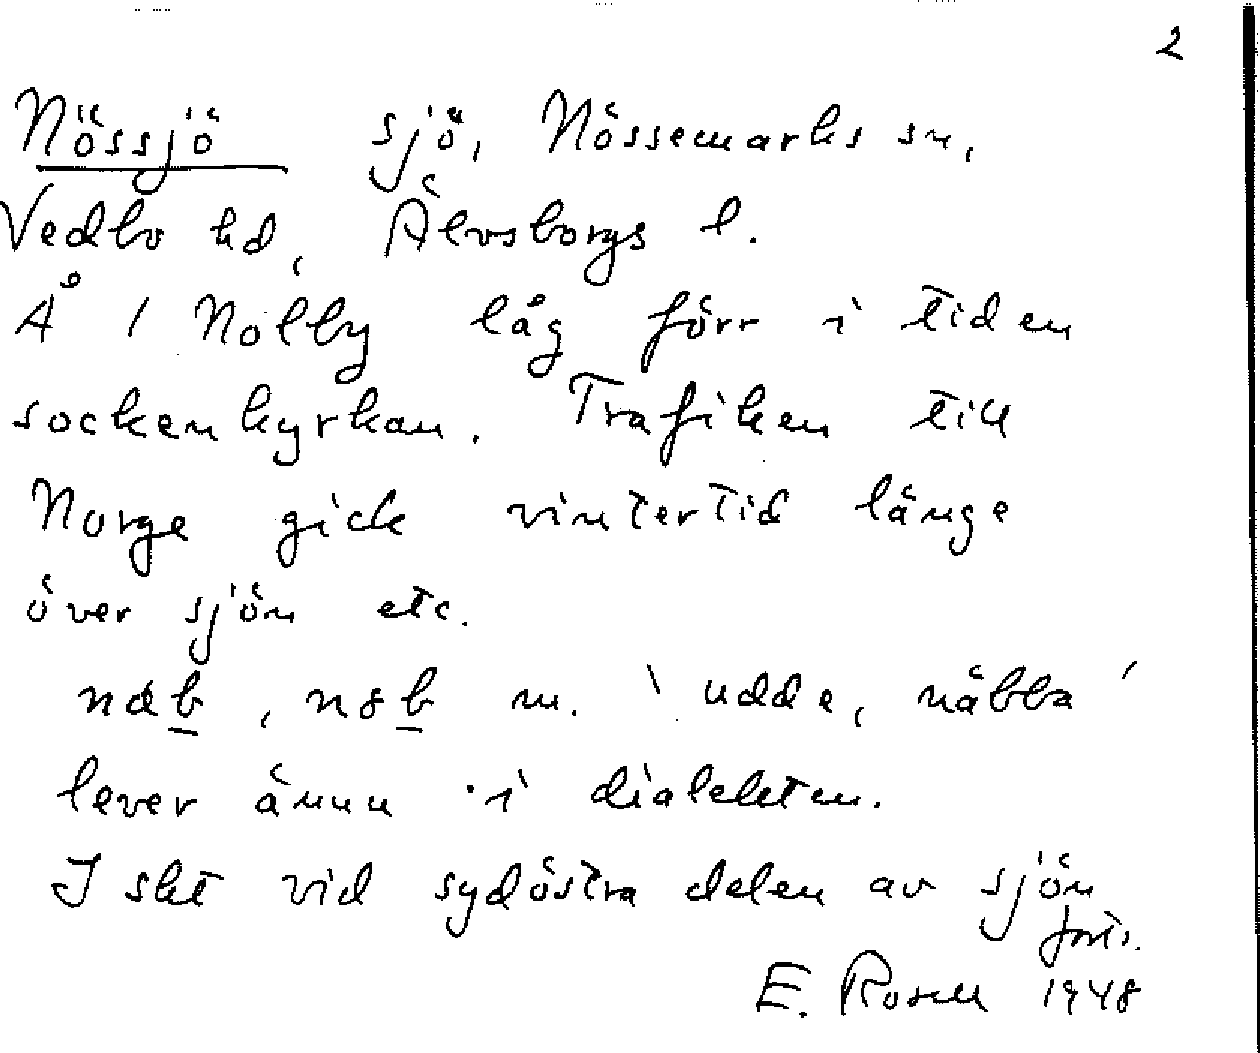 2
Nössjö sjö, Nössemarks sn,
Vedbo hd, Älvsborgs l.
Å / Nolby låg förr i tiden
sockenkyrkan. Trafiken till
Norge gick vintertid länge
över sjön etc.
nab, nɞb m. 'udde, näbba'
lever ännu i dialekten.
I skt vid sydöstra delen av sjön
forts.
E. Rosell 1948